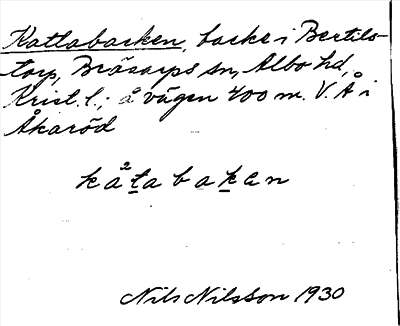 Kattabacken, backe i Bertils-
torp, Brösarps sn, Albo hd,
Krist. l.; å vägen 400 m. V. Å i
Åkaröd
kå²tabakan
Nils Nilsson 1930